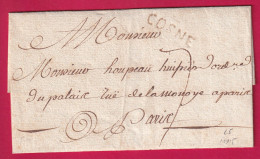 COSNE
A Monsieur
Monsieur houpeau huissier ordre
du palais rue de la monoye a paris
a Paris